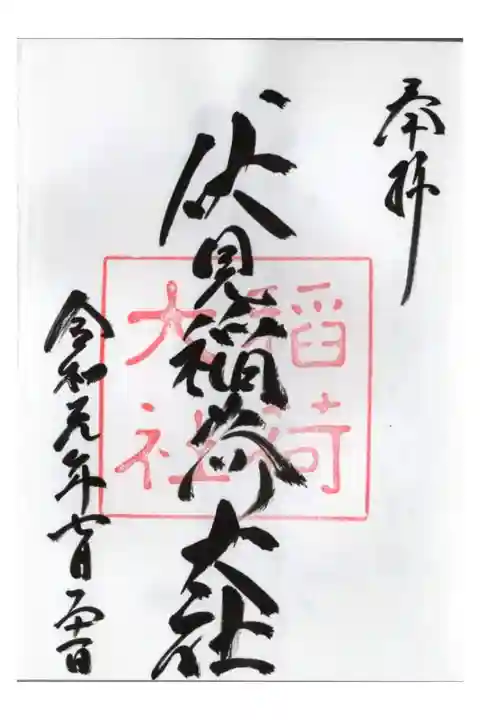 奉拝
伏見稲荷大社
稲荷
大社
令和元年七月